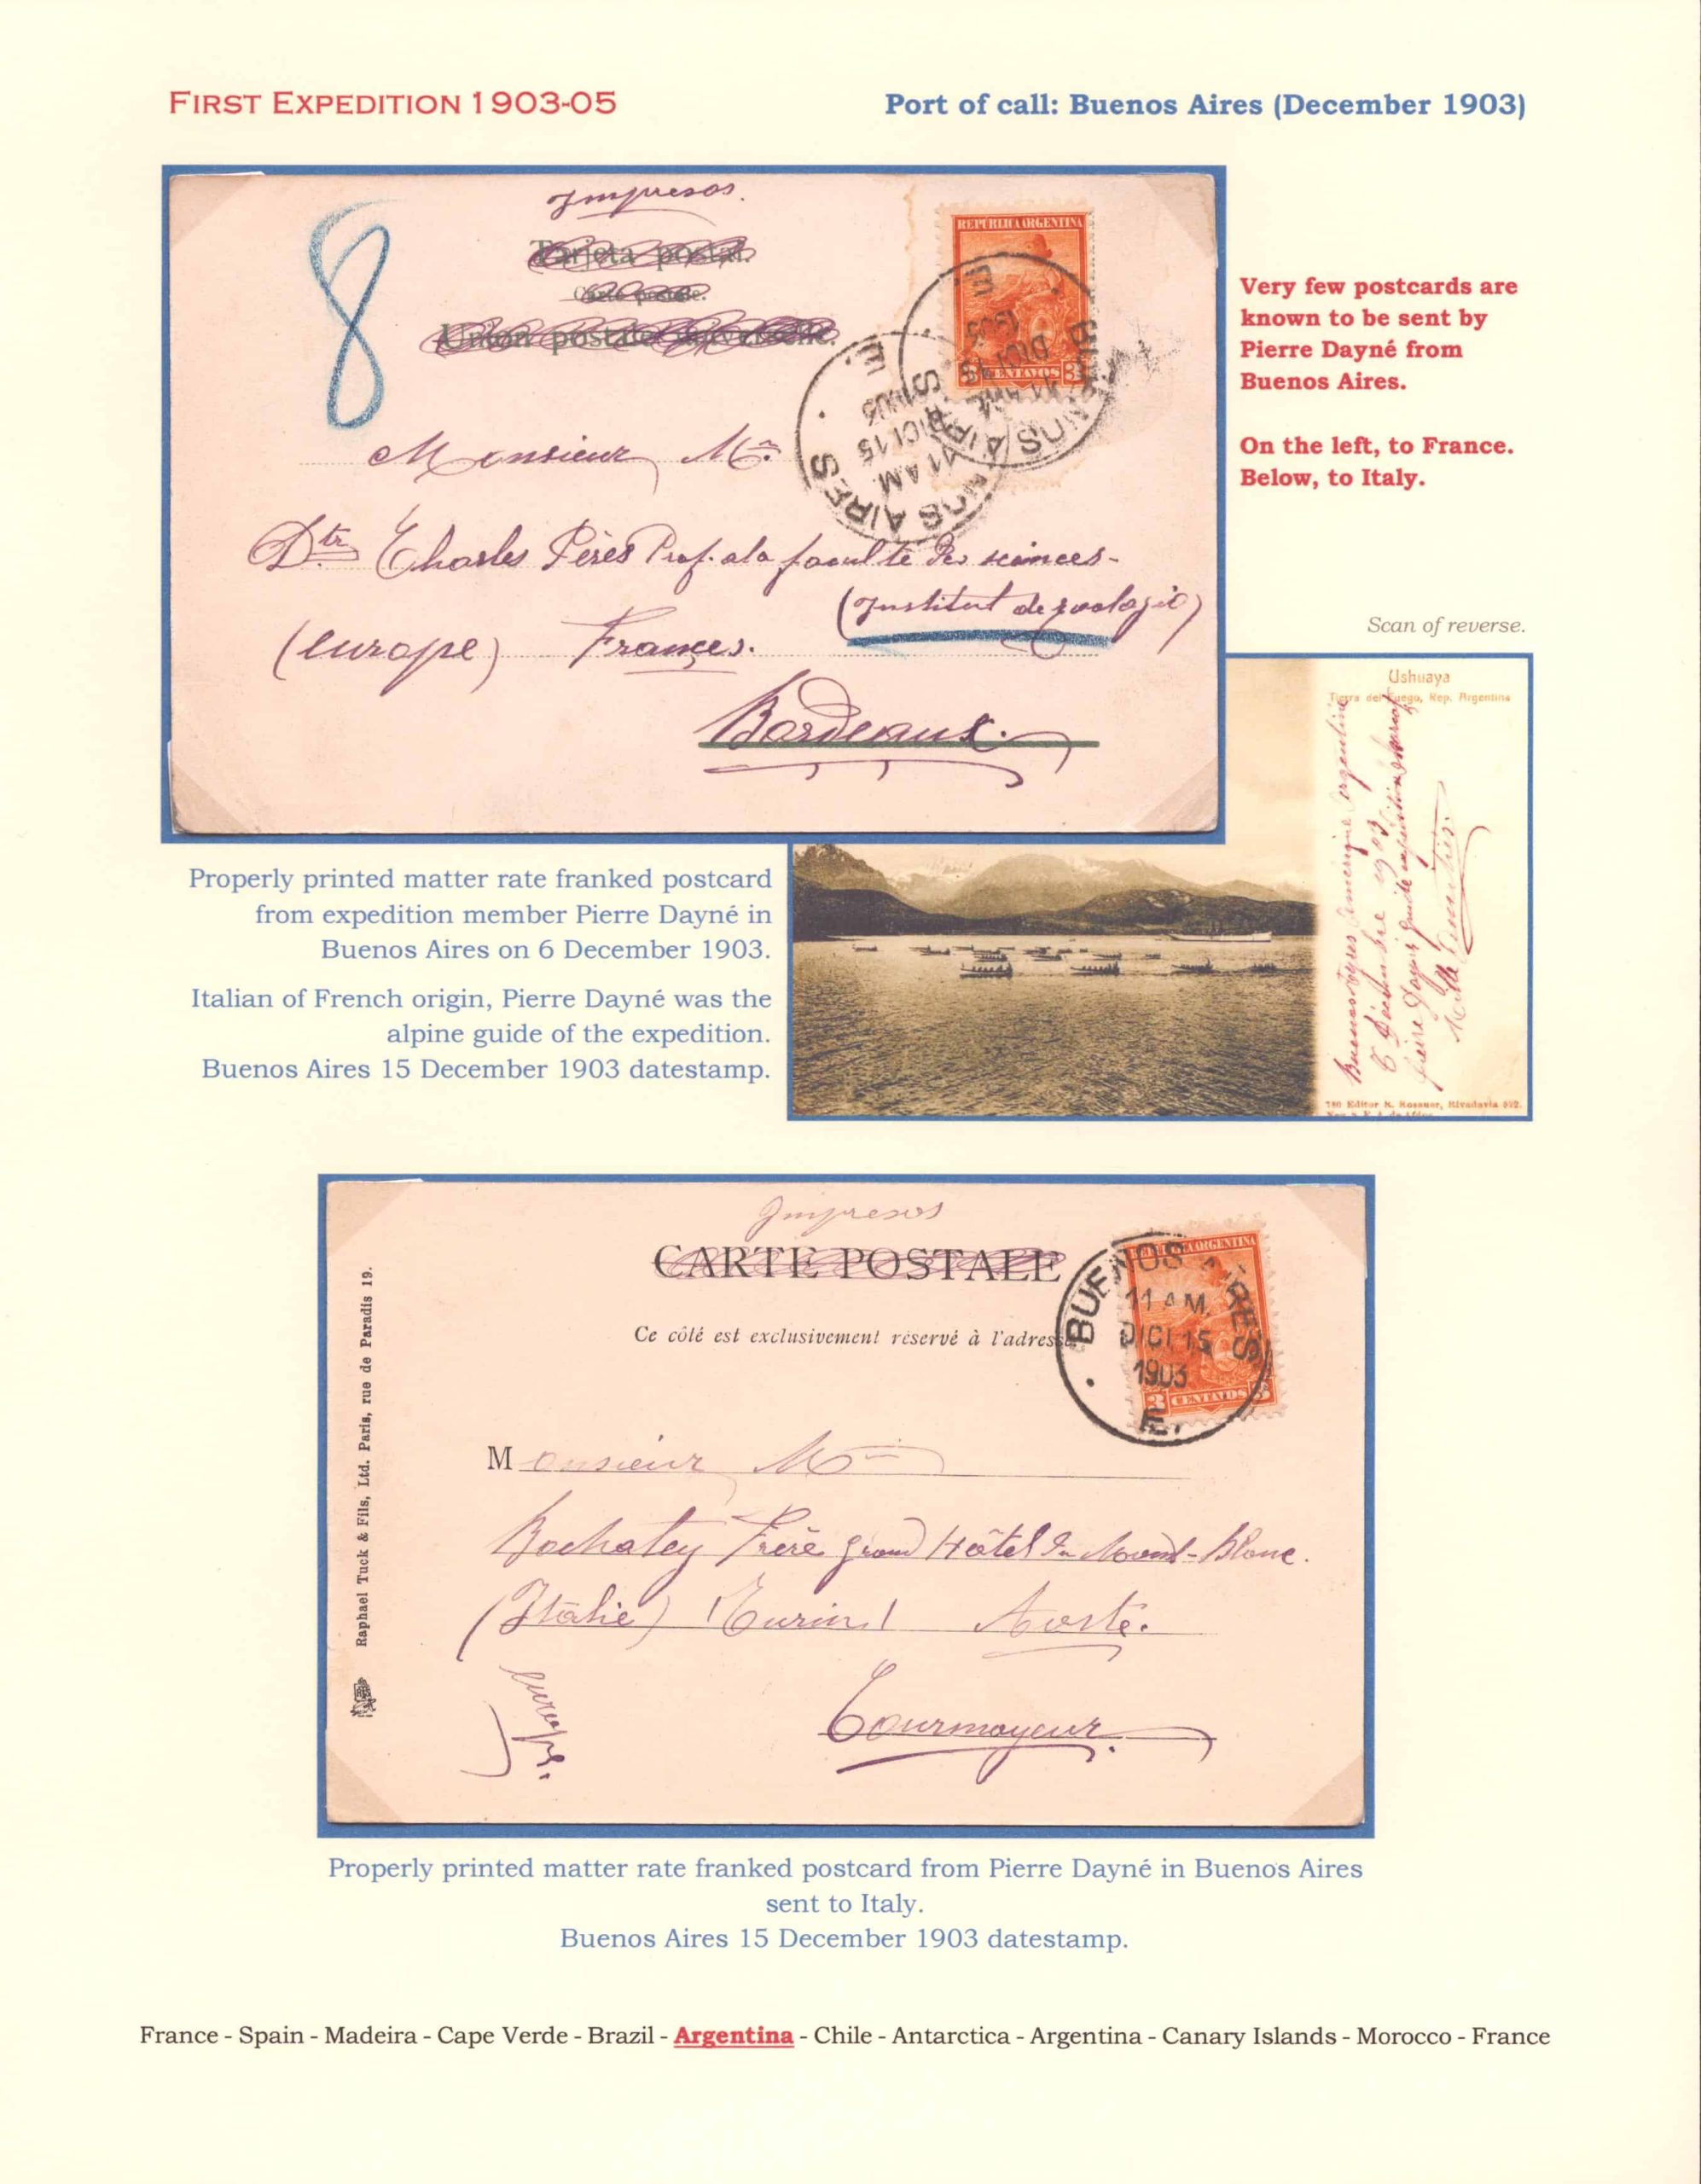 FIRST EXPEDITION 1903-05
Port of call: Buenos Aires (December 1903)
Impresos.
Tarjeta postal.
Carte postale.
Union postale universelle.
8
REPUBLICA ARGENTINA
CENTAVOS 3
BUENOS AIRES
11 AM.
DICI 15
1903
E.
BUENOS AIRES
11 AM.
DICI 15
1903
E.
Monsieur Mr.
Dtr Charles Pérès Prof. a la faculté des sciences-
(Institut de zoologie)
(europe) France.
Bordeaux.
Very few postcards are
known to be sent by
Pierre Dayné from
Buenos Aires.
On the left, to France.
Below, to Italy.
Scan of reverse.
Ushuaya
Tierra del Fuego, Rep. Argentina
Buenos Ayres amerique argentine
6 Décembre 1903
Pierre Dayné guide expedition
780 Editor R. Rosauer, Rivadavia 572.
Properly printed matter rate franked postcard
from expedition member Pierre Dayné in
Buenos Aires on 6 December 1903.
Italian of French origin, Pierre Dayné was the
alpine guide of the expedition.
Buenos Aires 15 December 1903 datestamp.
Impresos
CARTE POSTALE
Ce côté est exclusivement réservé à l'adresse
REPUBLICA ARGENTINA
3 CENTAVOS 3
BUENOS AIRES
11 AM.
DICI 15
1903
E.
Raphael Tuck & Fils, Ltd. Paris, rue de Paradis 19.
Monsieur Mr
Bochatey Frère grand Hôtel du Mont-Blanc.
(Italie) Turin Aoste.
europe.
Courmayeur.
Properly printed matter rate franked postcard from Pierre Dayné in Buenos Aires
sent to Italy.
Buenos Aires 15 December 1903 datestamp.
France - Spain - Madeira - Cape Verde - Brazil - Argentina - Chile - Antarctica - Argentina - Canary Islands - Morocco - France